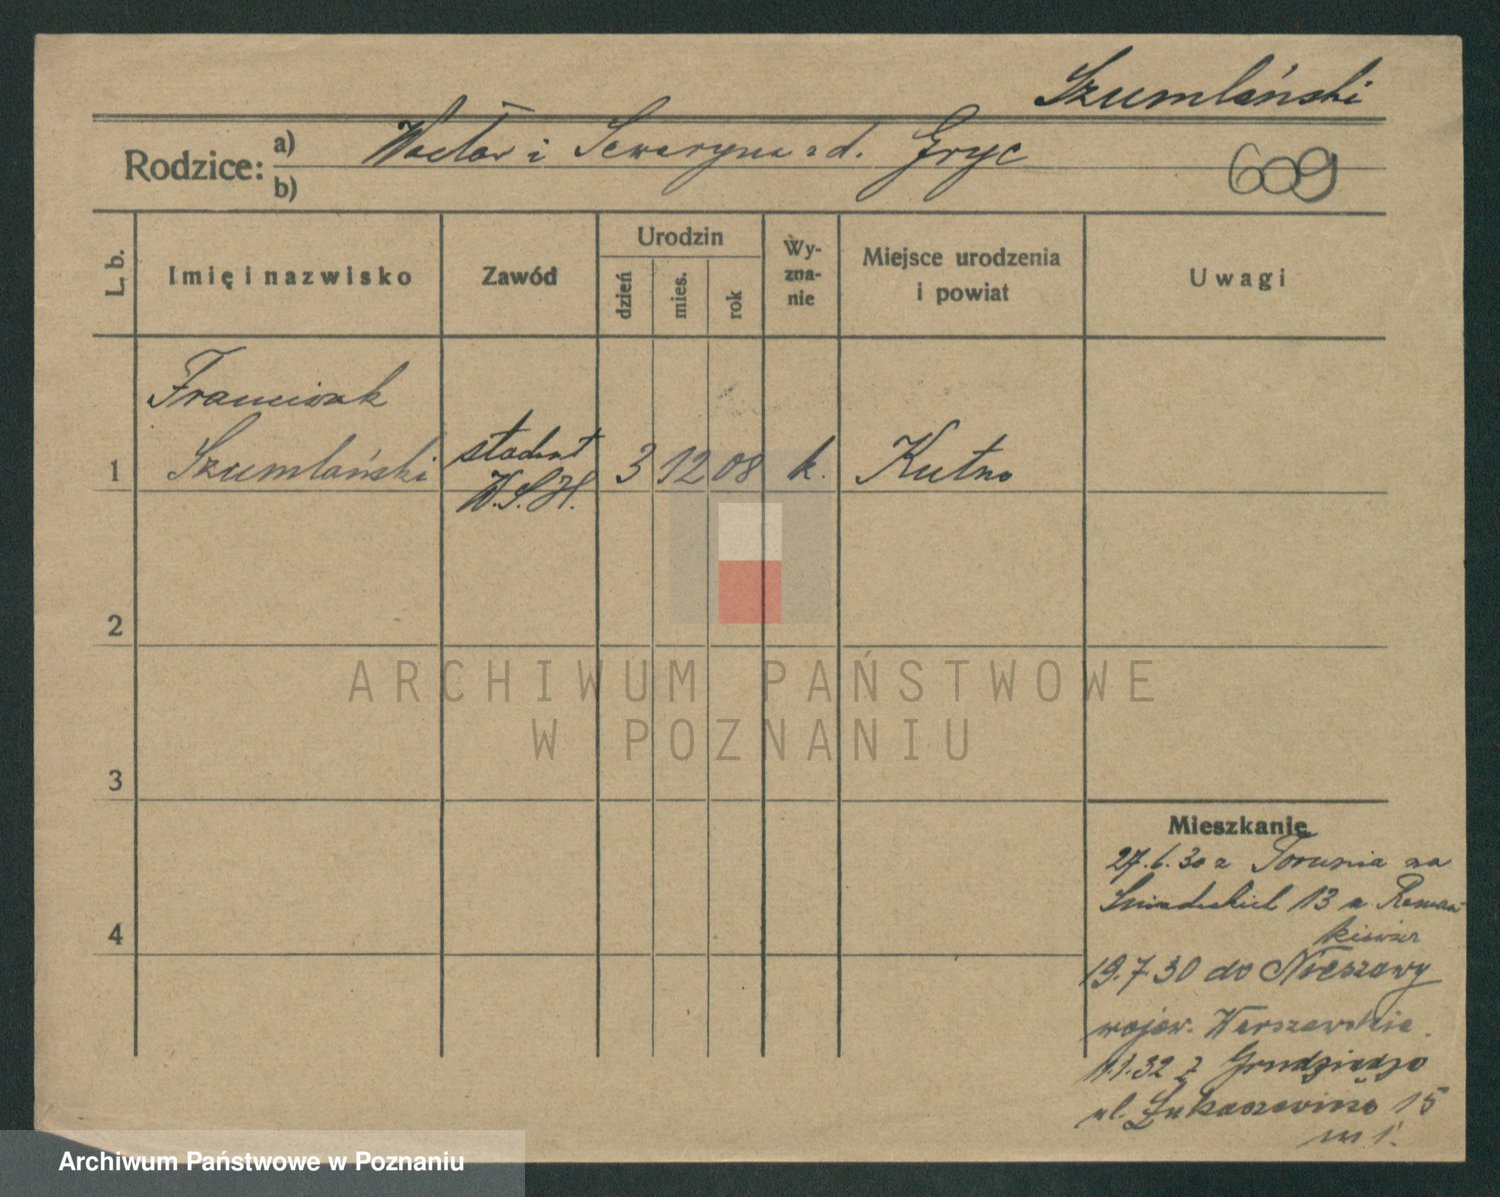 Szumlański
Rodzice: a) Wacław i Seweryna z d. Gryc
b)
609
L. b.
Imię i nazwisko
Zawód
Urodzin
dzień
mies.
rok
Wy-
zna-
nie
Miejsce urodzenia
i powiat
Uwagi
Franciszek
1 Szumlański student 3 12 08 k. Kutno
W.S.H.
2
3
4
Mieszkanie
27.6.30 z Torunia na
Śniadeckich 13 u
19.7.30 do Nieszawy
wojew. Warszawskie.
1.1.32 z Grudziądza
ul. Łukaszewicza 15
m 1.
ARCHIWUM PAŃSTWOWE
W POZNANIU
Archiwum Państwowe w Poznaniu